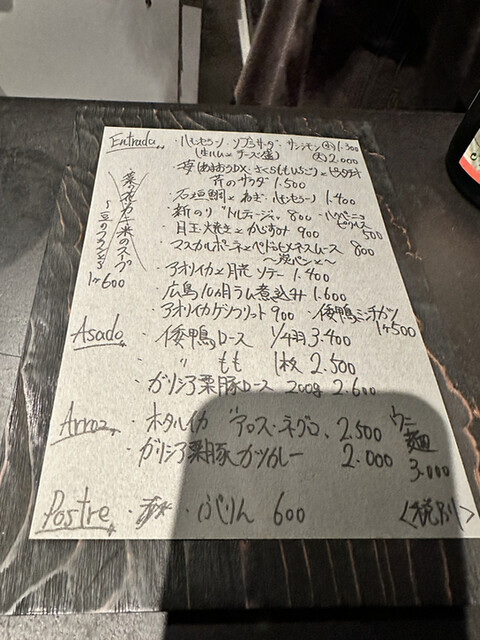 Entrada
・ハモセラーノ・ソブラサーダ・サンシモン (小)1.300
(生ハムとチーズ盛) (大)2.000
・苺(あまおうDX・さくらももいちご)とピスタチオ
芹のサラダ 1.500
・石垣鯛とねぎ・ハモセラーノ 1.400
・新のり トルティージャ 800 ・ハラペーニョピクルス 500
・目玉焼きとからすみ 900
・マスカルポーネとペドロヒメネスムース 800
〜炭パンと〜
・アオリイカと月光 ソテー 1.400
・広島10ヵ月ラム煮込み 1.600
・アオリイカゲソフリット 900 ・倭鴨ミンチカツ 1ヶ500
菜の花カニ米のスープ
1ヶ600
Asado
・倭鴨ロース 1/4羽 3.400
・〃 もも 1枚 2.500
・ガリシア栗豚ロース 200g 2.600
Arroz
・ホタルイカ アロス・ネグロ 2.500
・ガリシア栗豚カツカレー 2.000
ウニ麺 3.000
Postre
・ぷりん 600
<税別>